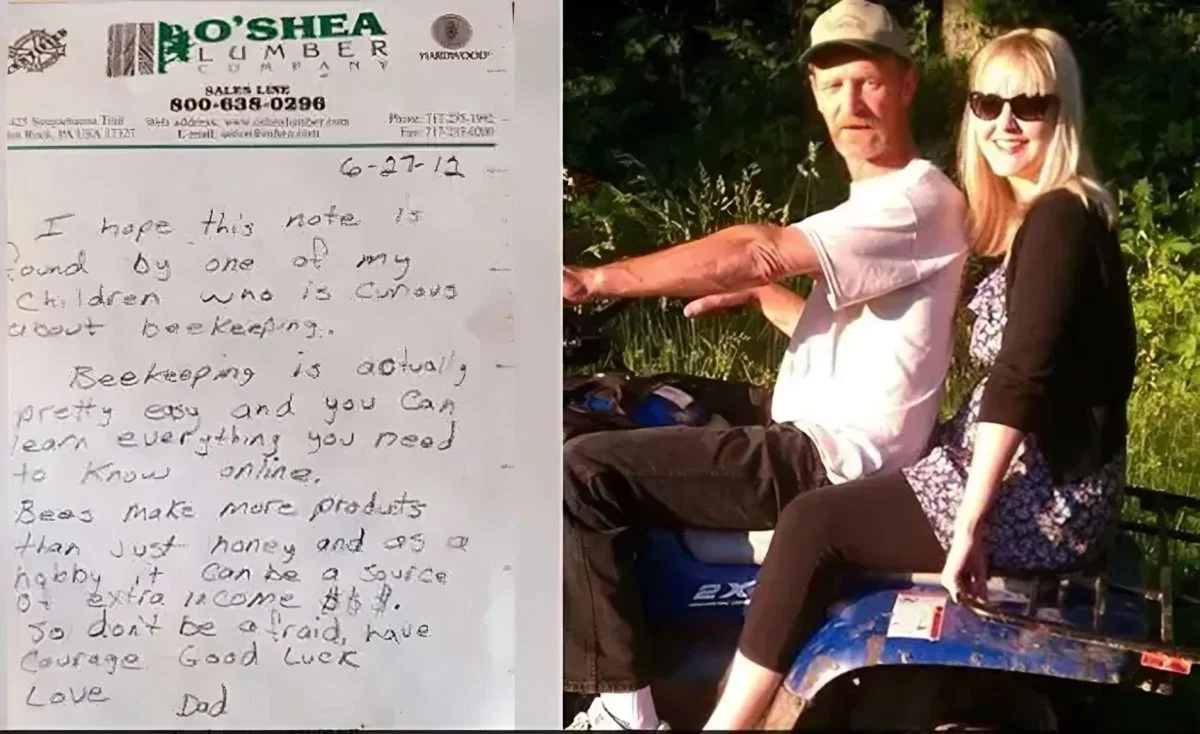 O'SHEA
LUMBER
COMPANY
HARDWOODS
SALES LINE
800-638-0296
Phone: 717-
Fax: 717-
6-27-12
I hope this note is
found by one of my
children who is curious
about beekeeping.
Beekeeping is actually
pretty easy and you can
learn everything you need
to know online.
Bees make more products
than just honey and as a
hobby it can be a source
of extra income $$$.
So don't be afraid, have
courage. Good Luck
Love Dad
2X